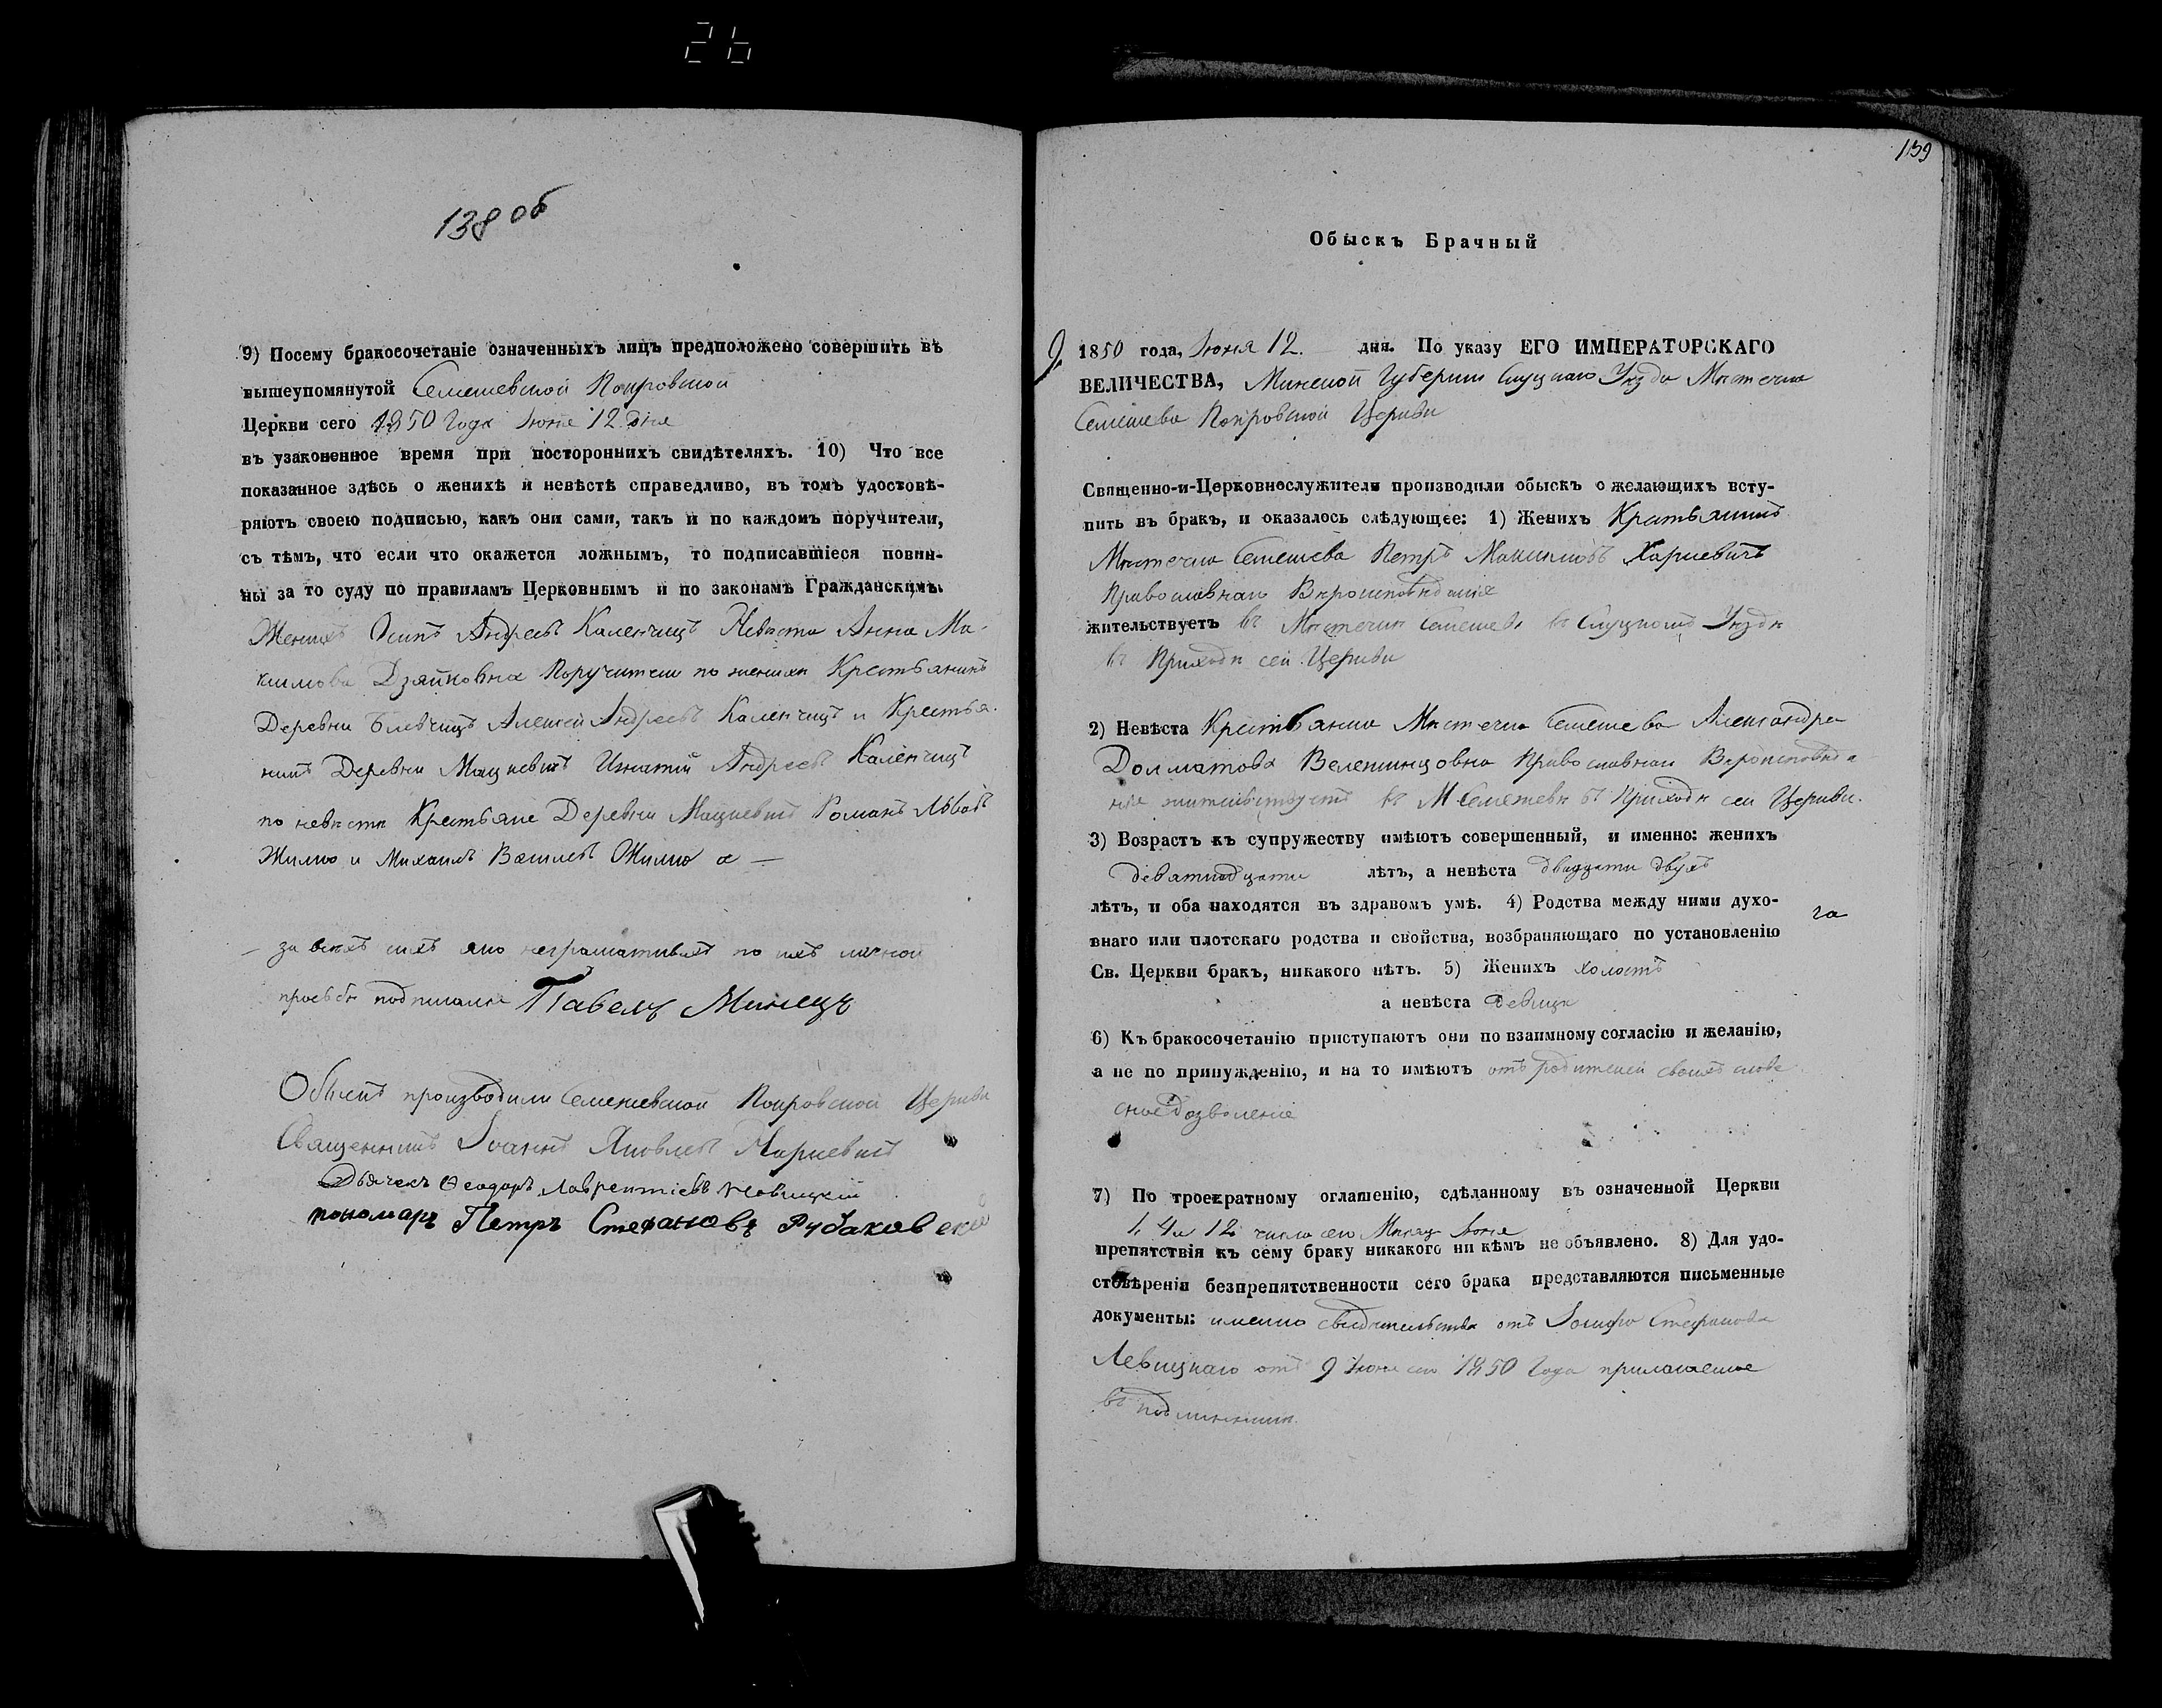 26
138 об
9) Посему бракосочетаніе означенныхъ лицъ предположено совершить въ
вышеупомянутой Семежевской Покровской
Церкви сего 1850 Года Іюня 12 дня
въ узаконенное время при постороннихъ свидѣтеляхъ. 10) Что все
показанное здѣсь о женихѣ и невѣстѣ справедливо, въ томъ удостовѣ-
ряютъ своею подписью, какъ они сами, такъ и по каждомъ поручители,
съ тѣмъ, что если что окажется ложнымъ, то подписавшіеся повин-
ны за то суду по правиламъ Церковнымъ и по законамъ Гражданскимъ.
Женихъ Осипъ Андреевъ Каленчицъ Невѣста Анна Ма-
кимова Поручители по женихѣ Крестьянинъ
Деревни Андреевъ Каленчицъ и Крестья-
нинъ Деревни Мацкевичъ Игнатій Андреевъ Каленчицъ
по невѣстѣ Крестьяне Деревни Мацкевичъ Романъ Львовъ
Жилко и Михаилъ Васильевъ Жилко а —
— за всѣхъ ихъ яко неграматныхъ по ихъ личной
просьбѣ подписался Павелъ Минецъ
Обыскъ производили Семежевской Покровской Церкви
Священникъ Іоаннъ Яковлевъ
Дьячекъ Ѳеодоръ Лаврентіевъ Новицкій
пономарь Петръ Стефановъ Рубаковскій
139
Обыскъ Брачный
9. 1850 года, Іюня 12. дня. По указу ЕГО ИМПЕРАТОРСКАГО
ВЕЛИЧЕСТВА, Минской Губерніи Слуцкаго Уѣзда Мѣстечка
Семежева Покровской Церкви
Священно-и-Церковнослужители производили обыскъ о желающихъ всту-
пить въ бракъ, и оказалось слѣдующее: 1) Женихъ Крестьянинъ
Мѣстечка Семежева Петръ Максимовъ Харкевичъ
Православнаго Вѣроисповѣданія
жительствуетъ въ Мѣстечкѣ Семежевѣ въ Слуцкомъ Уѣздѣ
въ Приходѣ сей Церкви
2) Невѣста Крестьянка Мѣстечка Семежева Александра
Долматова Православнаго Вѣроисповѣда
нія жительствуетъ въ М Семежевѣ въ Приходѣ сей Церкви.
3) Возрастъ къ супружеству имѣютъ совершенный, и именно: женихъ
девятнадцати лѣтъ, а невѣста двадцати двухъ
лѣтъ, и оба находятся въ здравомъ умѣ. 4) Родства между ними духо-
внаго или плотскаго родства и свойства, возбраняющаго по установленію
Св. Церкви бракъ, никакого нѣтъ. 5) Женихъ холостъ
а невѣста Девица
6) Къ бракосочетанію приступаютъ они по взаимному согласію и желанію,
а не по принужденію, и на то имѣютъ отъ родителей своихъ слове
сное дозволеніе
7) По троекратному оглашенію, сдѣланному въ означенной Церкви
1, 4 и 12 числа сего Мѣсяца Іюня
препятствія къ сему браку никакого ни кѣмъ не объявлено. 8) Для удо-
стовѣренія безпрепятственности сего брака представляются письменные
документы: именно свидѣтельства отъ Стефанова
Левицкаго отъ 9 Іюня сего 1850 Года прилагаемое
въ подлинникѣ.